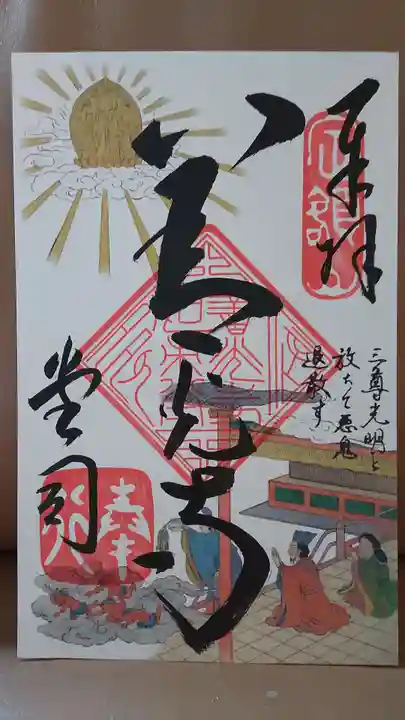 奉拝
定額山
三尊光明を
放ちて悪鬼
退散す
善光寺
堂司